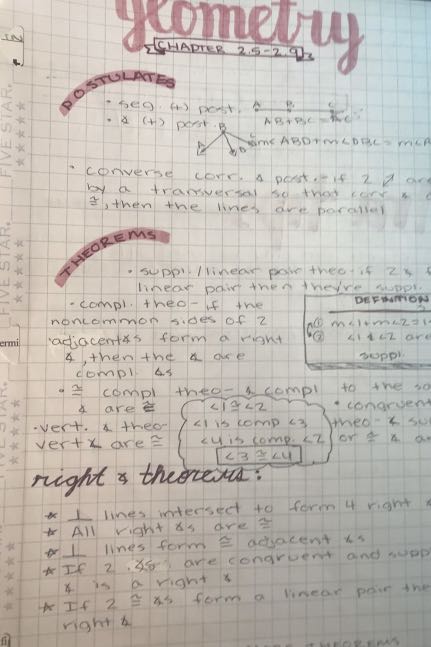 geometry
CHAPTER 2.5-2.9
POSTULATES
• seg. (+) post. A B C
AB+BC=AC
• ∡ (+) post. A B C D
m∠ABD+m∠DBC=m∠A
• converse corr. ∡ post. - if 2 ∥ are
by a transversal so that corr ∡
≅, then the lines are parallel
THEOREMS
• suppl./linear pair theo- if 2 ∡ f
linear pair then they're suppl.
• compl. theo- if the
noncommon sides of 2
adjacent ∡s form a right
∡, then the ∡ are
compl. ∡s
DEFINITION
① m∠1+m∠2=1
② ∠1 & ∠2 are
suppl.
• ≅ compl theo- ∡ compl to the sa
∡ are ≅
• vert. ∡ theo-
vert ∡ are ≅
∠1≅∠2
∠1 is comp ∠3
∠4 is comp. ∠2
∠3≅∠4
• congruent
theo- ∡ su
or ≅ ∡ a
right ∡ theorems:
★ ⊥ lines intersect to form 4 right ∡
★ All right ∡s are ≅
★ ⊥ lines form ≅ adjacent ∡s
★ If 2 ∡s are congruent and supp
∡ is a right ∡
★ If 2 ≅ ∡s form a linear pair the
right ∡
THEOREMS
FIVE STAR.
FIVE STAR.
ermi